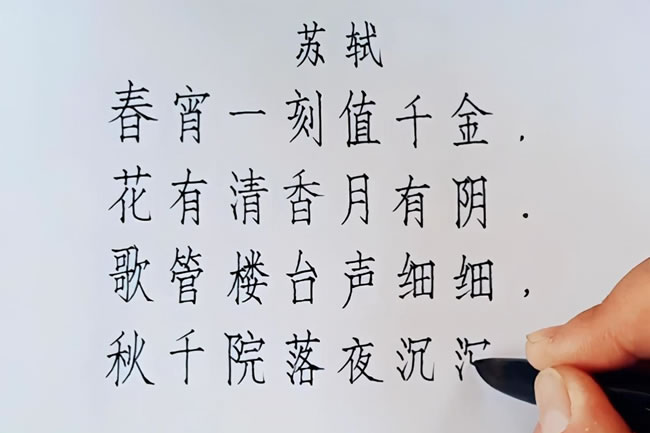 苏轼
春宵一刻值千金，
花有清香月有阴.
歌管楼台声细细，
秋千院落夜沉沉